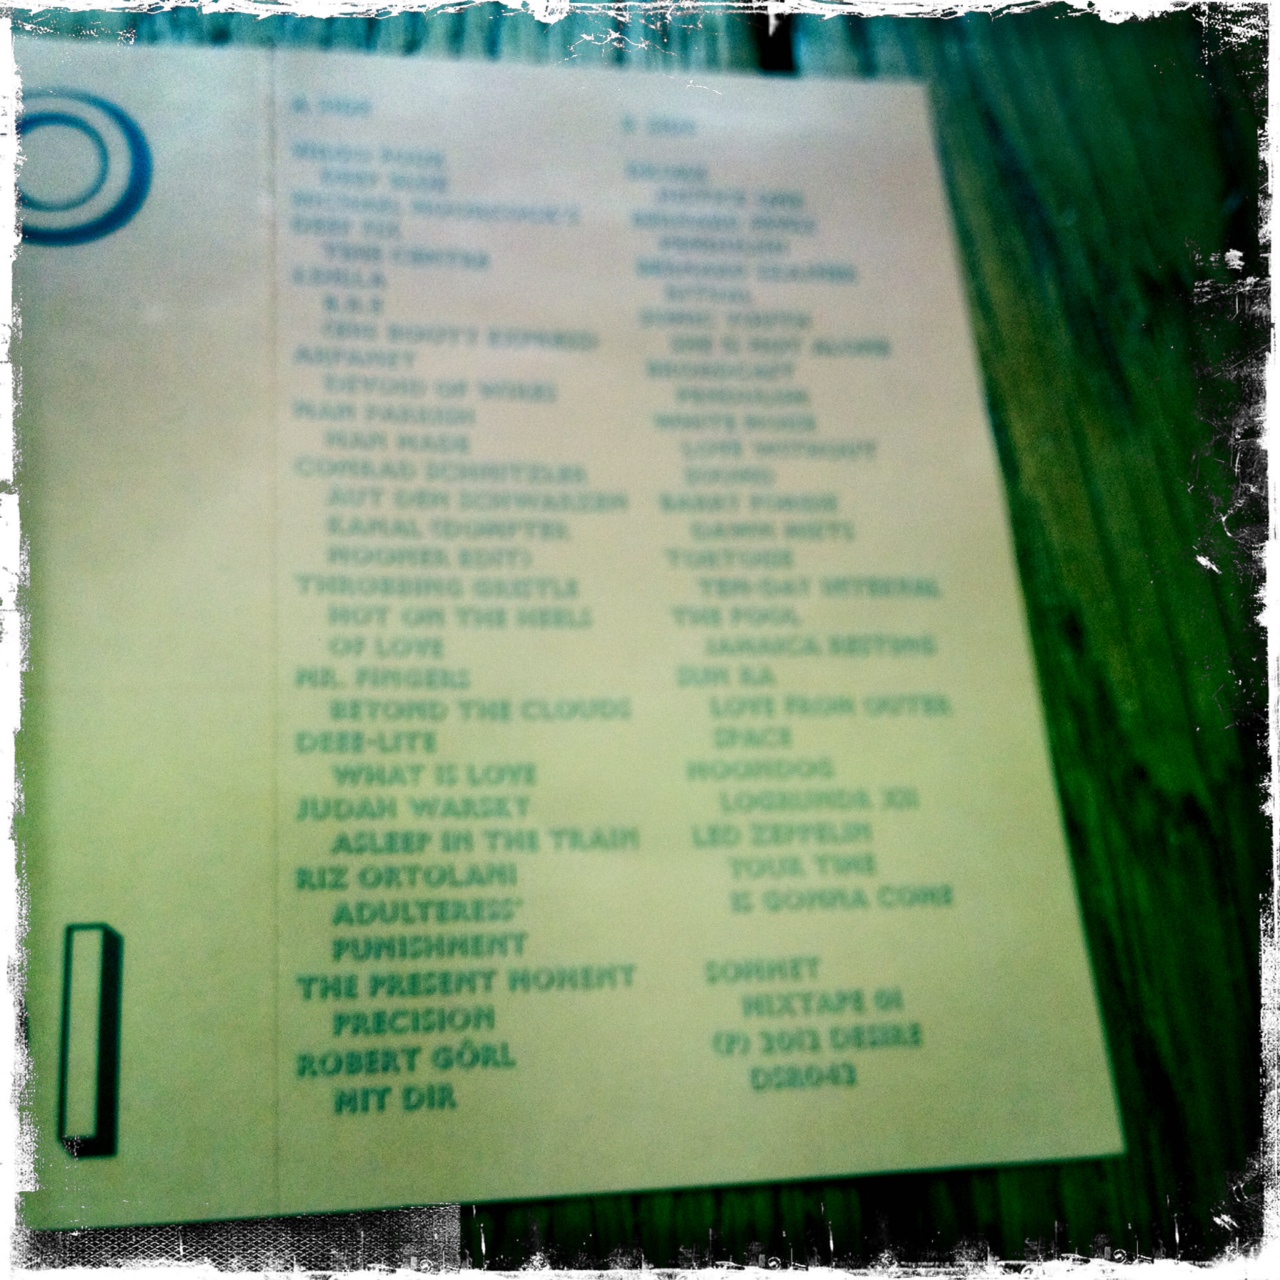 A SIDE
VIRGO FOUR
DEEP
MICHAEL MOORCOCK'S
DEEP FIX
TIME CENTRE
E.S.P.
ARPANET
DEVOID OF WIRES
MAN PARRISH
MAN MADE
CONRAD SCHNITZLER
AUF DEM SCHWARZEN
KANAL (DOMPTER
MOONER EDIT)
THROBBING GRISTLE
HOT ON THE HEELS
OF LOVE
MR. FINGERS
BEYOND THE CLOUDS
DEEE-LITE
WHAT IS LOVE
JUDAH WARSKY
ASLEEP IN THE TRAIN
RIZ ORTOLANI
ADULTERESS'
PUNISHMENT
THE PRESENT MOMENT
PRECISION
ROBERT GÖRL
MIT DIR
B SIDE
RITUAL
SONIC YOUTH
SHE IS NOT ALONE
BROADCAST
PENDULUM
WHITE NOISE
LOVE WITHOUT
SOUND
BARRY FORGIE
DAWN MISTS
TORTOISE
TEN-DAY INTERVAL
THE POOL
JAMAICA RESTING
SUN RA
LOVE FROM OUTER
SPACE
MOONDOG
LOGRUNDR XII
LED ZEPPELIN
YOUR TIME
IS GONNA COME
SOMMET
MIXTAPE 01
(P) 2012 DESIRE
DSR043